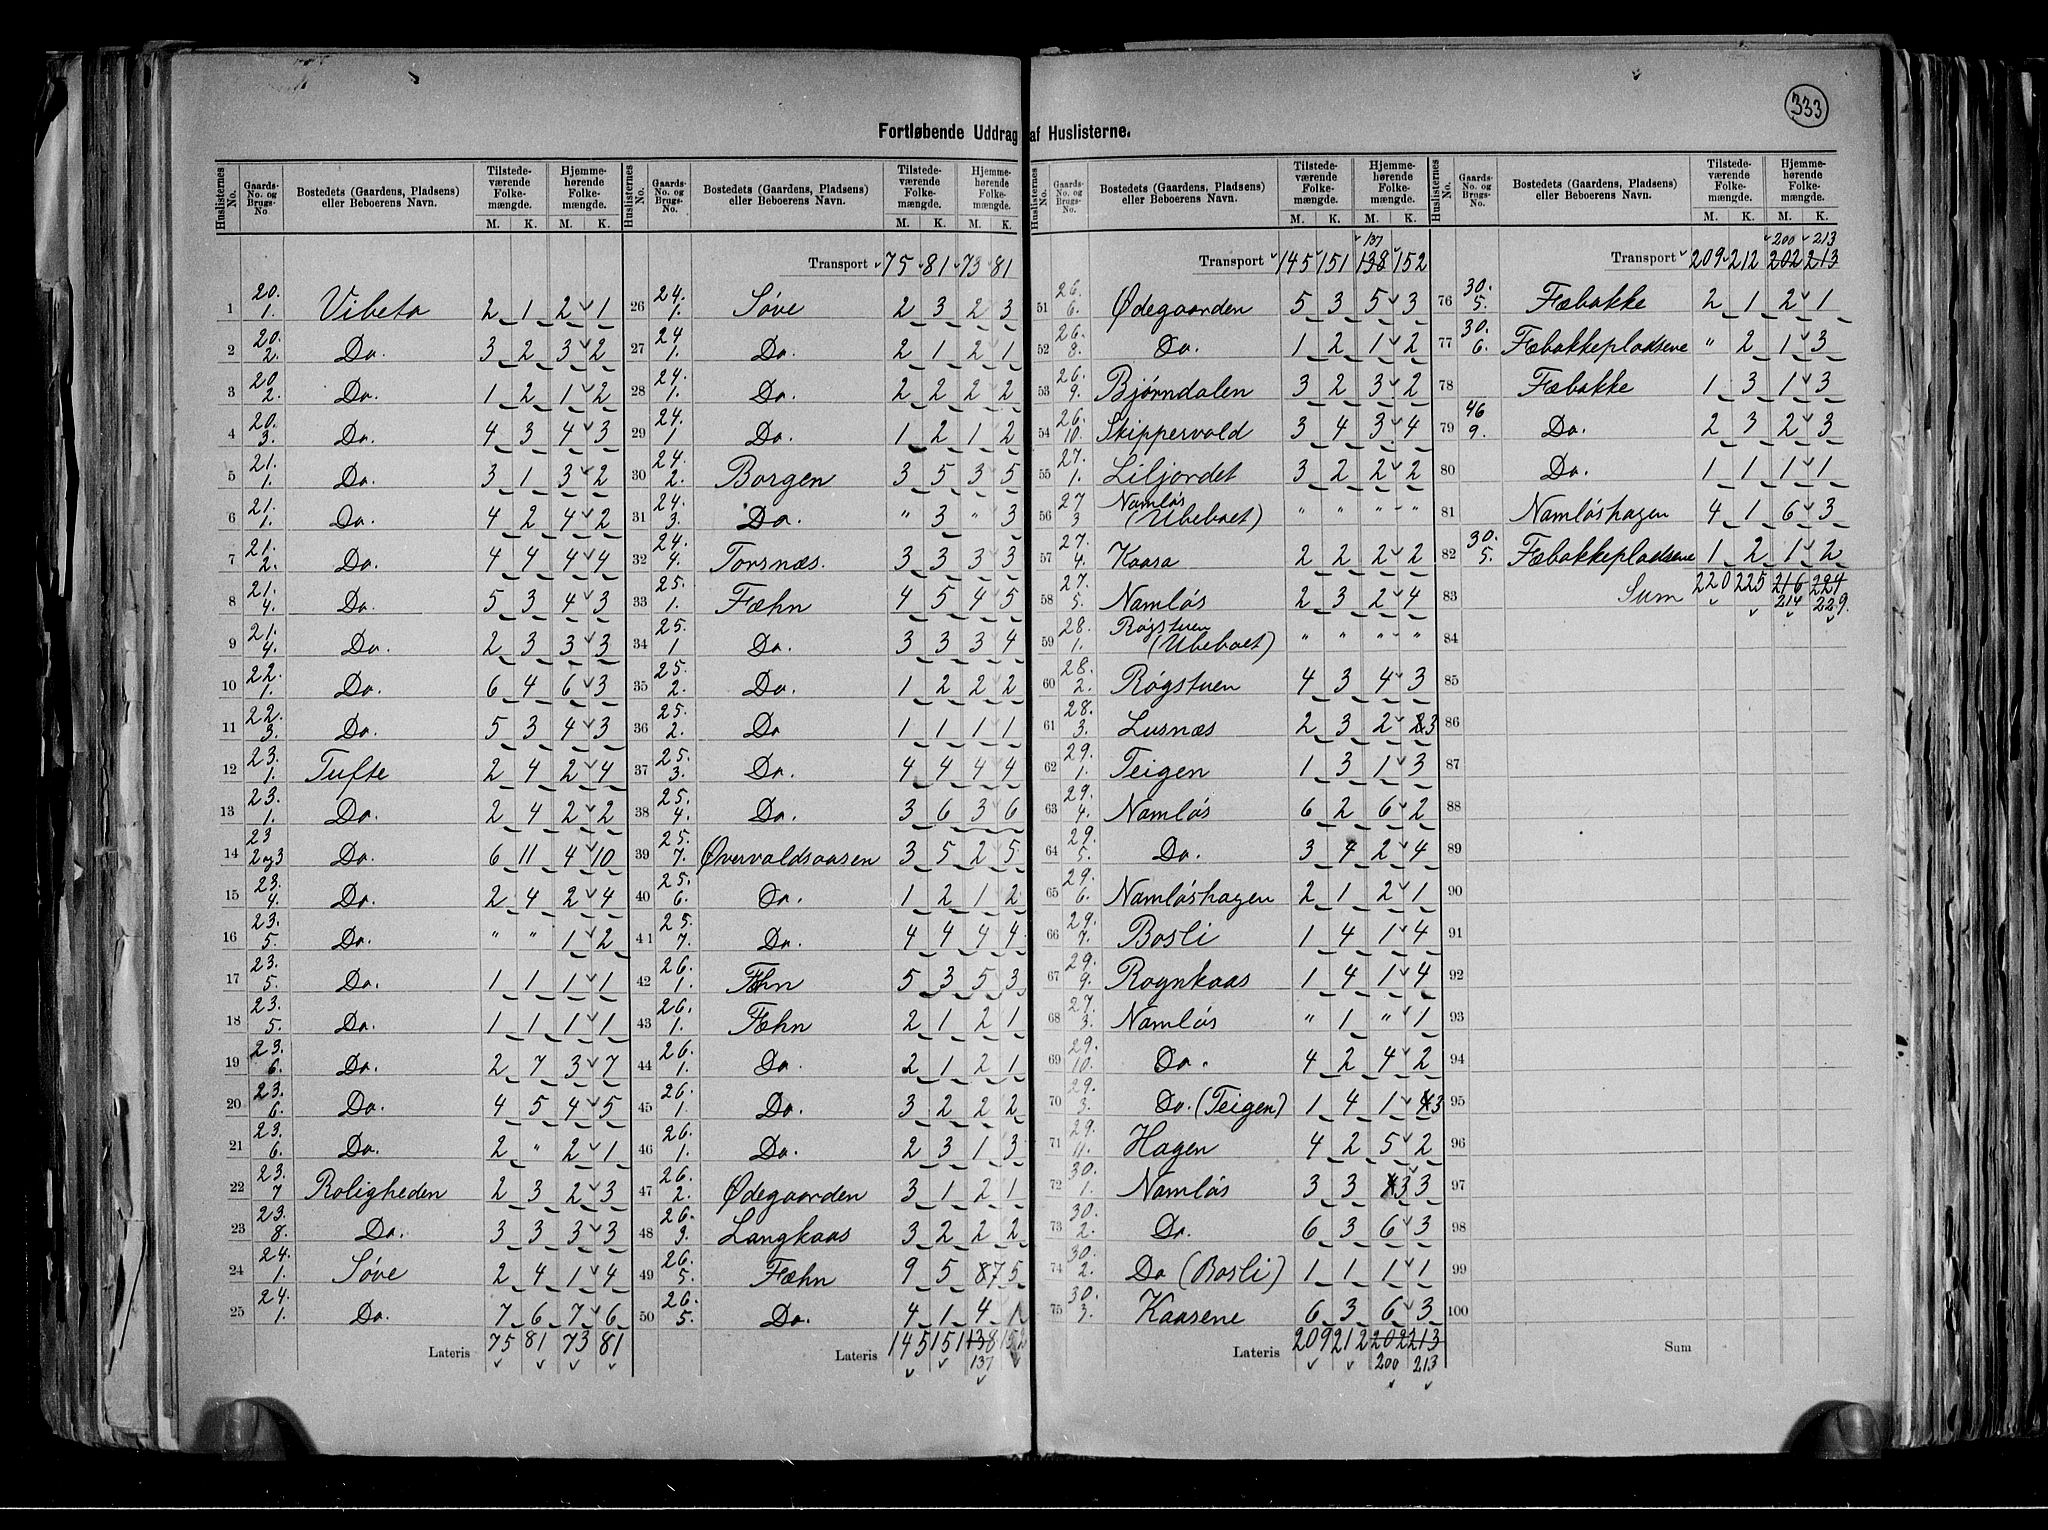 333
Fortløbende Uddrag af Huslisterne.
Huslisternes No. | Gaards-No. og Brugs-No. | Bostedets (Gaardens, Pladsens) eller Beboerens Navn. | Tilstedeværende Folkemængde. M. K. | Hjemmehørende Folkemængde. M. K.
1 20. 1. Vibeto 2 1 2 1
2 20. 2. Do. 3 2 3 2
3 20 2. Do. 1 2 1 2
4 20 3. Do. 4 3 4 3
5 21. 1. Do. 3 1 3 2
6 21. 1. Do. 4 2 4 2
7 21. 2. Do. 4 4 4 4
8 21. 4. Do. 5 3 4 3
9 21. 4. Do. 2 3 3 3
10 22. 1. Do. 6 4 6 3
11 22. 3. Do. 5 3 4 3
12 23. 1. Tufte 2 4 2 4
13 23. 1. Do. 2 4 2 2
14 23 2 og 3 Do. 6 11 4 10
15 23. 4. Do. 2 4 2 4
16 23. 5. Do. " " 1 2
17 23. 5. Do. 1 1 1 1
18 23. 5. Do. 1 1 1 1
19 23. 6. Do. 2 7 3 7
20 23. 6. Do. 4 5 4 5
21 23. 6. Do. 2 " 2 1
22 23. 7 Roligheden 2 3 2 3
23 23. 8. Do. 3 3 3 3
24 24. 1. Søve 2 4 1 4
25 24. 1. Do. 7 6 7 6
Lateris 75 81 73 81
Huslisternes No. | Gaards-No. og Brugs-No. | Bostedets (Gaardens, Pladsens) eller Beboerens Navn. | Tilstedeværende Folkemængde. M. K. | Hjemmehørende Folkemængde. M. K.
Transport 75 81 73 81
26 24. 1. Søve 2 3 2 3
27 24 1. Do. 2 1 2 1
28 24. 1. Do. 2 2 2 2
29 24. 1 Do. 1 2 1 2
30 24. 2. Borgen 3 5 3 5
31 24. 3. Do. " 3 " 3
32 24. 4. Torsnæs. 3 3 3 3
33 25. 1. Fæhn 4 5 4 5
34 25. 1 Do. 3 3 3 4
35 25. 2. Do. 1 2 2 2
36 25. 2. Do 1 1 1 1
37 25. 3. Do. 4 4 4 4
38 25. 4. Do. 3 6 3 6
39 25. 7. Øvervaldsaasen 3 5 2 5
40 25. 6. Do. 1 2 1 2
41 25. 7. Do. 4 4 4 4
42 26. 1. Fæhn 5 3 5 3
43 26. 1. Fæhn 2 1 2 1
44 26. 1. Do. 2 1 2 1
45 26. 1. Do. 3 2 2 2
46 26. 1. Do. 2 3 1 3
47 26. 2. Ødegaarden 3 1 2 1
48 26. 3. Langkaas 3 2 2 2
49 26. 5. Fæhn 9 5 8 7 5
50 26. 5. Do. 4 1 4 1
Lateris 145 151 138 152
137
Huslisternes No. | Gaards-No. og Brugs-No. | Bostedets (Gaardens, Pladsens) eller Beboerens Navn. | Tilstedeværende Folkemængde. M. K. | Hjemmehørende Folkemængde. M. K.
137
Transport 145 151 138 152
51 26. 6. Ødegaarden 5 3 5 3
52 26. 8. Do. 1 2 1 2
53 26. 9. Bjørndalen 3 2 3 2
54 26. 10. Skippervold 3 4 3 4
55 27. 1. Liljordet 3 2 2 2
56 27 3 Namløs (Ubeboet) " " " "
57 27. 4. Kaasa 2 2 2 2
58 27. 5. Namløs 2 3 2 4
59 28. 1. Røgstuen (Ubeboet) " " " "
60 28. 2. Røgstuen 4 3 4 3
61 28. 3. Lusnæs 2 3 2 3
62 29. 1. Teigen 1 3 1 3
63 29. 4. Namløs 6 2 6 2
64 29. 5. Do. 3 4 2 4
65 29. 6. Namløshagen 2 1 2 1
66 29. 7. Bosli 1 4 1 4
67 29. 9. Rognkaas 1 4 1 4
68 27. 3. Namløs " 1 " 1
69 29. 10. Do. 4 2 4 2
70 29. 3. Do. (Teigen) 1 4 1 4 3
71 29. 11. Hagen 4 2 5 2
72 30. 1. Namløs 3 3 4 3 3
73 30. 2. Do. 6 3 6 3
74 30. 2. Do (Bosli) 1 1 1 1
75 30. 3. Kaasene 6 3 6 3
Lateris 209 212 202 213
200 213
Huslisternes No. | Gaards-No. og Brugs-No. | Bostedets (Gaardens, Pladsens) eller Beboerens Navn. | Tilstedeværende Folkemængde. M. K. | Hjemmehørende Folkemængde. M. K.
200 213
Transport 209 212 202 213
76 30. 5. Fæbakke 2 1 2 1
77 30. 6. Fæbakkepladsene " 2 1 3
78 Fæbakke 1 3 1 3
79 46 9. Do. 2 3 2 3
80 Do. 1 1 1 1
81 Namløshagen 4 1 6 3
82 30. 5. Fæbakkepladsene 1 2 1 2
83 Sum 220 225 216 224
84 214 229.
85
86
87
88
89
90
91
92
93
94
95
96
97
98
99
100
Sum